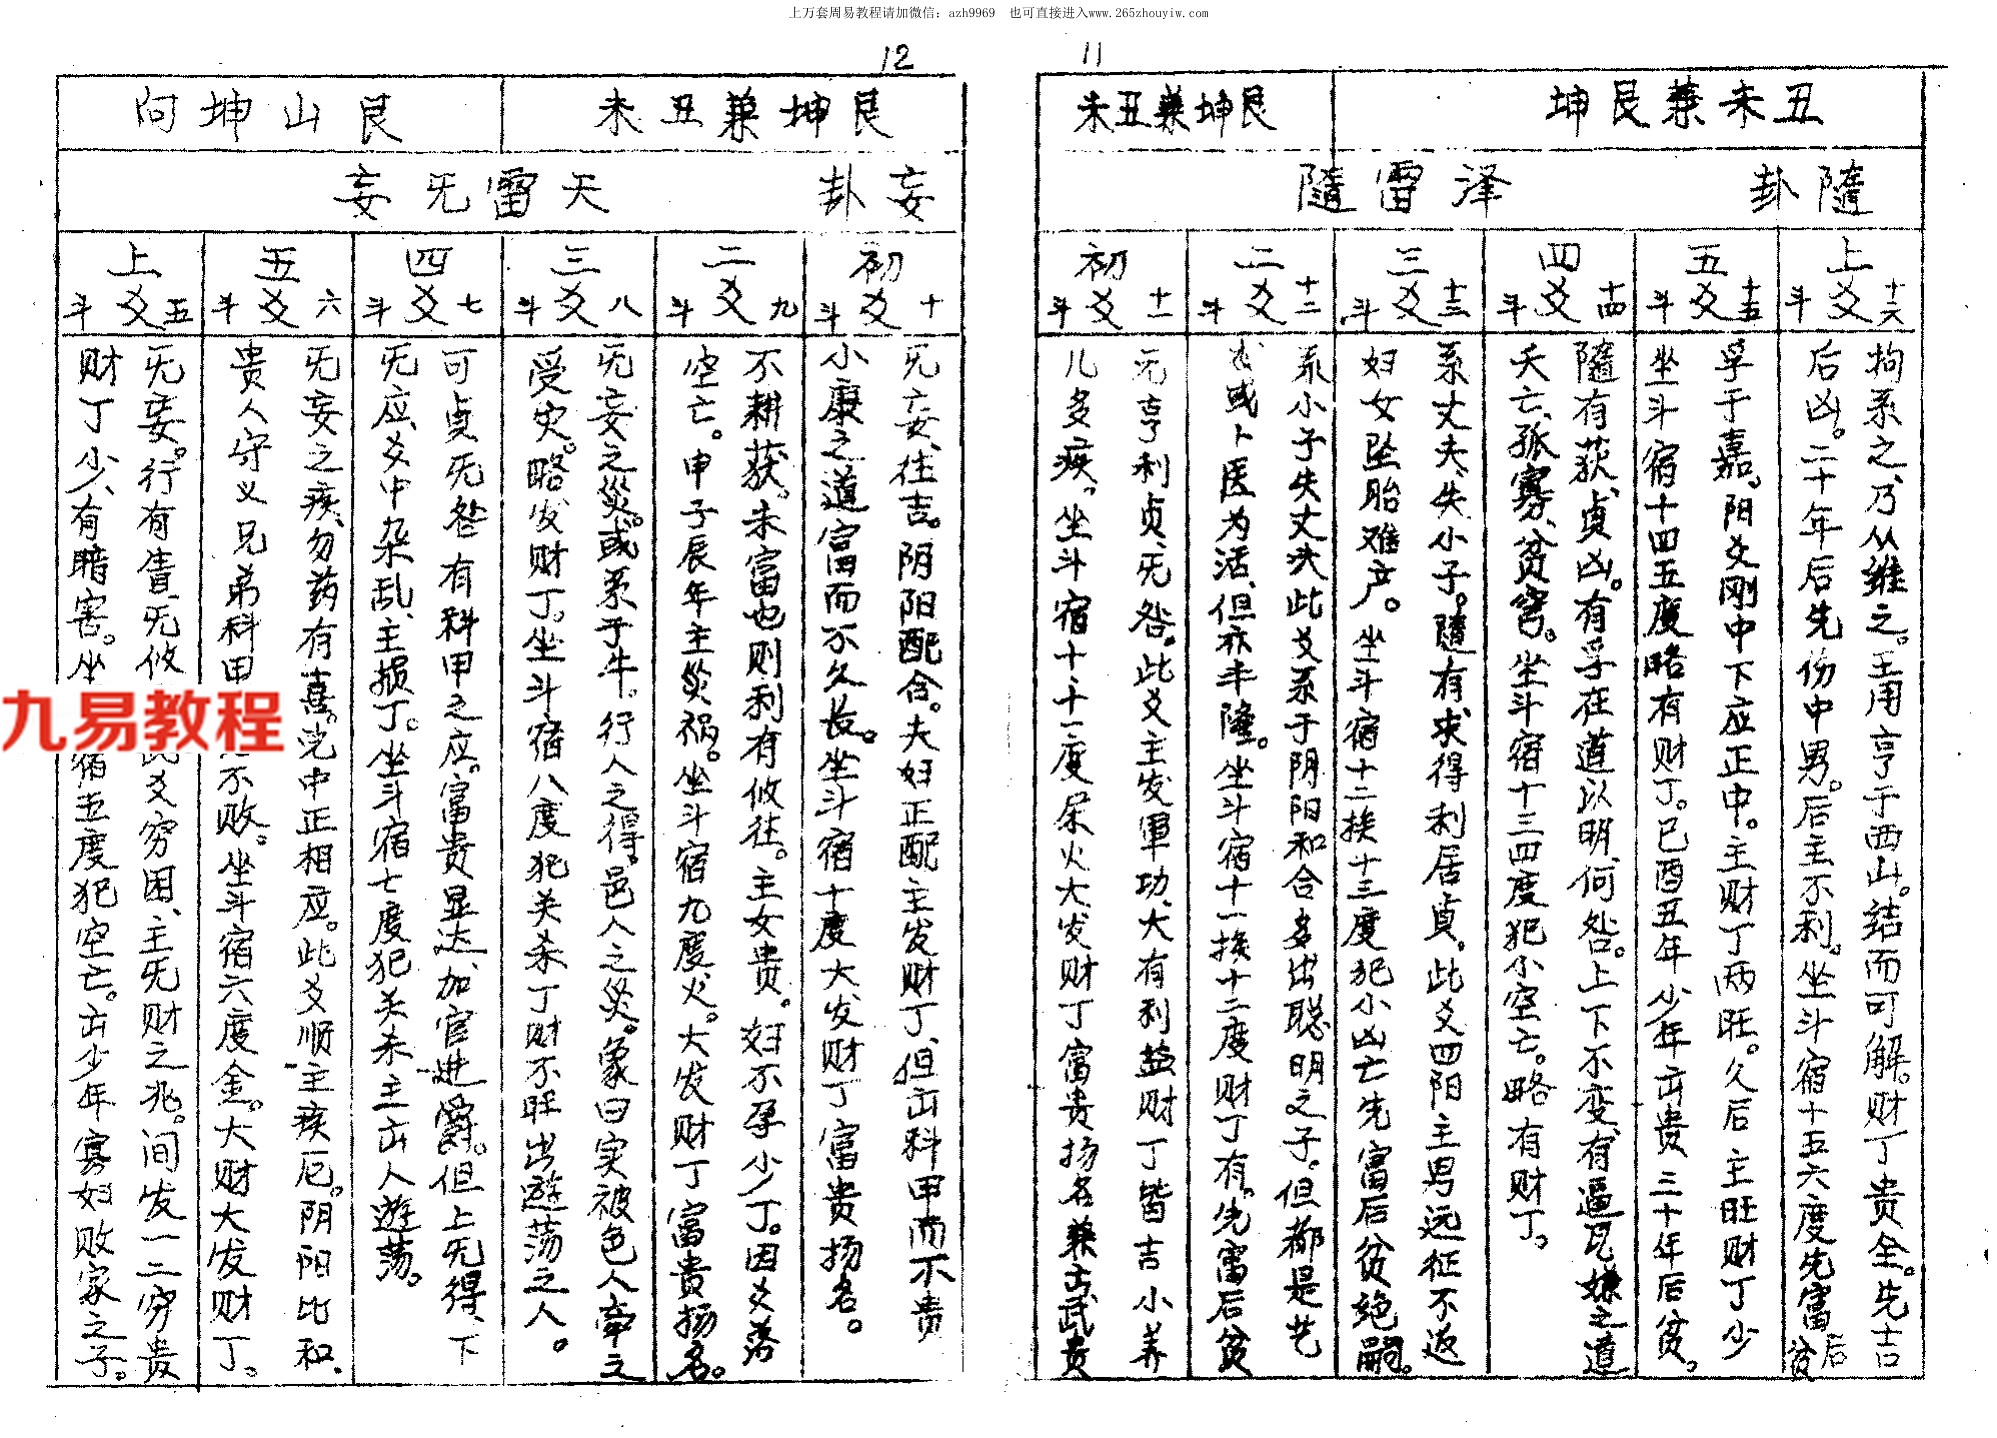 上万套周易教程请加微信：azh9969　也可直接进入www.265zhouyiw.com
11
丑未兼艮坤
艮坤兼丑未
隨卦
泽雷隨
上爻
十六
斗
拘系之、乃从維之。王用亨于西山。结而可解。财丁贵全。先吉
后凶。二十年后先伤中男。后主不利。坐斗宿十五六度先富后贫
五爻
十五
斗
孚于嘉。阳爻刚中下应正中。主财丁两旺。久后主旺财丁少
坐斗宿十四五度略有财丁。巳酉丑年少年出贵三十年后贫。
四爻
十四
斗
隨有获、贞凶。有孚在道以明、何咎。上下不变、有逼嫌之道
夭亡、孤寡、贫害。坐斗宿十三四度犯小空亡。略有财丁。
三爻
十三
斗
系丈夫、失小子。隨有求得利居贞。此爻四阳主男远征不返
妇女坠胎难产。坐斗宿十二挨十三度犯小凶亡先富后贫绝嗣。
二爻
十二
斗
系小子失丈夫此爻系于阴阳和合多出聪明之子。但都是艺
或卜医为活、但亦丰隆。坐斗宿十一挨十二度财丁有。先富后贫
初爻
十一
斗
元亨利贞、无咎。此爻主发軍功、大有利益财丁皆吉小养
儿多疾。坐斗宿十、十一度尿火大发财丁富贵扬名兼出武贵
12
艮坤兼丑未
艮山坤向
妄卦
天雷无妄
初爻
十
斗
无妄、往吉。阴阳配合。夫妇正配主发财丁、但出科甲而不贵
小康之道富而不久长。坐斗宿十度大发财丁富贵扬名。
二爻
九
斗
不耕获。未富也则利有攸往。主女贵。妇不孕少丁。因爻落
空亡。申子辰年主災祸。坐斗宿九度火。大发财丁富贵扬名。
三爻
八
斗
无妄之災。或系于牛。行人之得。邑人之災。象曰实被色人牵之
受灾。略发财丁。坐斗宿八度犯关杀丁财不旺出遊荡之人。
四爻
七
斗
可贞无咎有科甲之应。富贵显达、加官进爵。但上无得、下
无应、爻中杂乱、主损丁。坐斗宿七度犯关杀主出人遊荡。
五爻
六
斗
无妄之疾、勿药有喜。中正相应。此爻顺主疾厄。阴阳比和、
贵人守义兄弟科甲不败。坐斗宿六度金。大财大发财丁。
上爻
五
斗
无妄。行有眚、无攸爻穷困、主无财之兆。间发一二穷贵
财丁少、有暗害。坐宿五度犯空亡。出少年寡妇败家之子。
九易教程